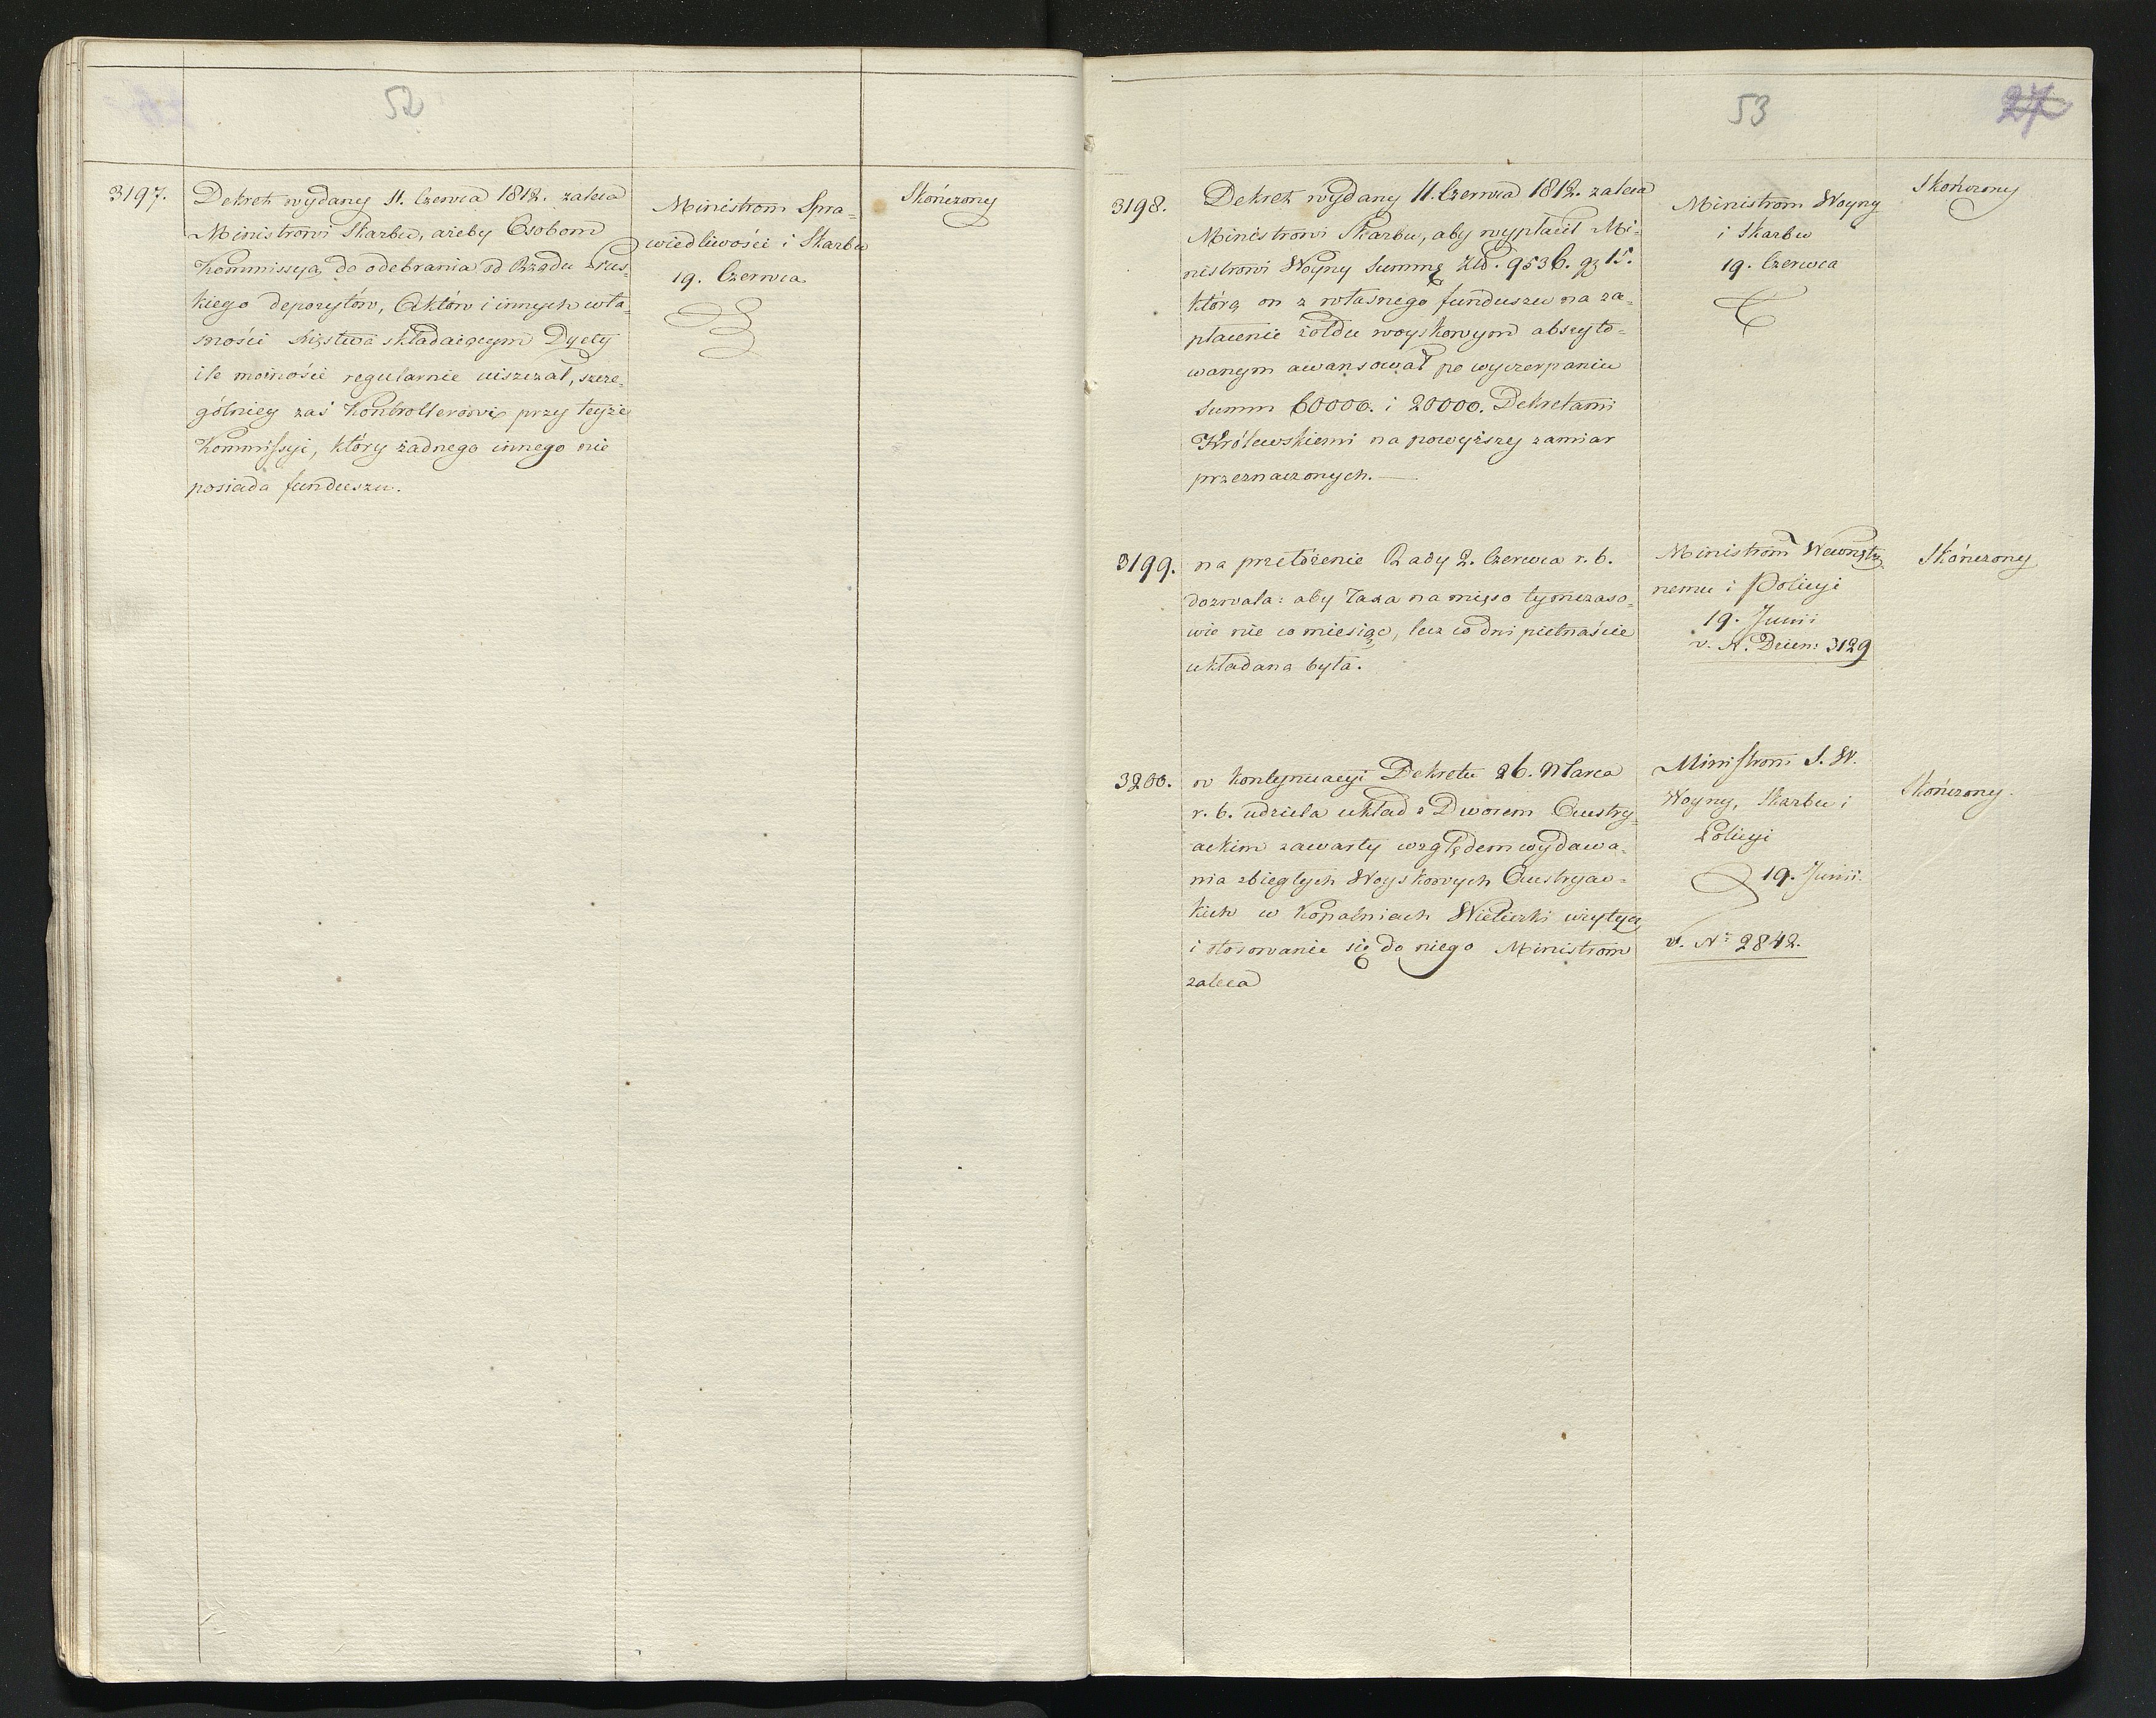 52
3197.
Dekret wydany 11. Czerwca 1812. zaleca
Ministrowi Skarbu, ażeby Osobom
Kommissyą do odebrania od Rządu Prus-
kiego depozytów, Aktów i innych wła-
sności Xięstwa składaiącym Dyety
ile możności regularnie uiszczał, szcze-
gólniey zaś Kontrollerowi przy teyże
Kommissyi, który żadnego innego nie
posiada funduszu.
Ministrom Spra-
wiedliwości i Skarbu
19. Czerwca
Skończony
53
27
3198.
Dekret wydany 11. Czerwca 1812. zaleca
Ministrowi Skarbu, aby wypłacił Mi-
nistrowi Woyny Summę Złł. 9536. gr 15.
którą on z własnego funduszu na za-
płacenie żołdu woyskowym abszyto-
wanym awansował po wyczerpaniu
summ 60000. i 20000. Dekretami
Królewskiemi na powyższy zamiar
przeznaczonych.
Ministrom Woyny
i Skarbu
19. Czerwca
Skończony
3199.
na przełożenie Rady 2. Czerwca r. b.
dozwala: aby Taxa na mięso tymczaso-
wie nie co miesiąc, lecz co dni piętnaście
układana była.
Ministrom Wewnętrz
nemu i Policyi
19. Junii
v. N. Dzien: 3129
Skończony
3200.
w kontynuacyi Dekretu 26. Marca
r. b. udziela układ z Dworem Austry-
ackim zawarty względem wydawa-
nia zbiegłych Woyskowych Austryac-
kich w kopalniach Wieliczki użytych
i stosowanie się do niego Ministrom
zaleca
Ministrom S. W.
Woyny, Skarbu i
Policyi
19. Junii.
v. Nº 2842.
Skończony.